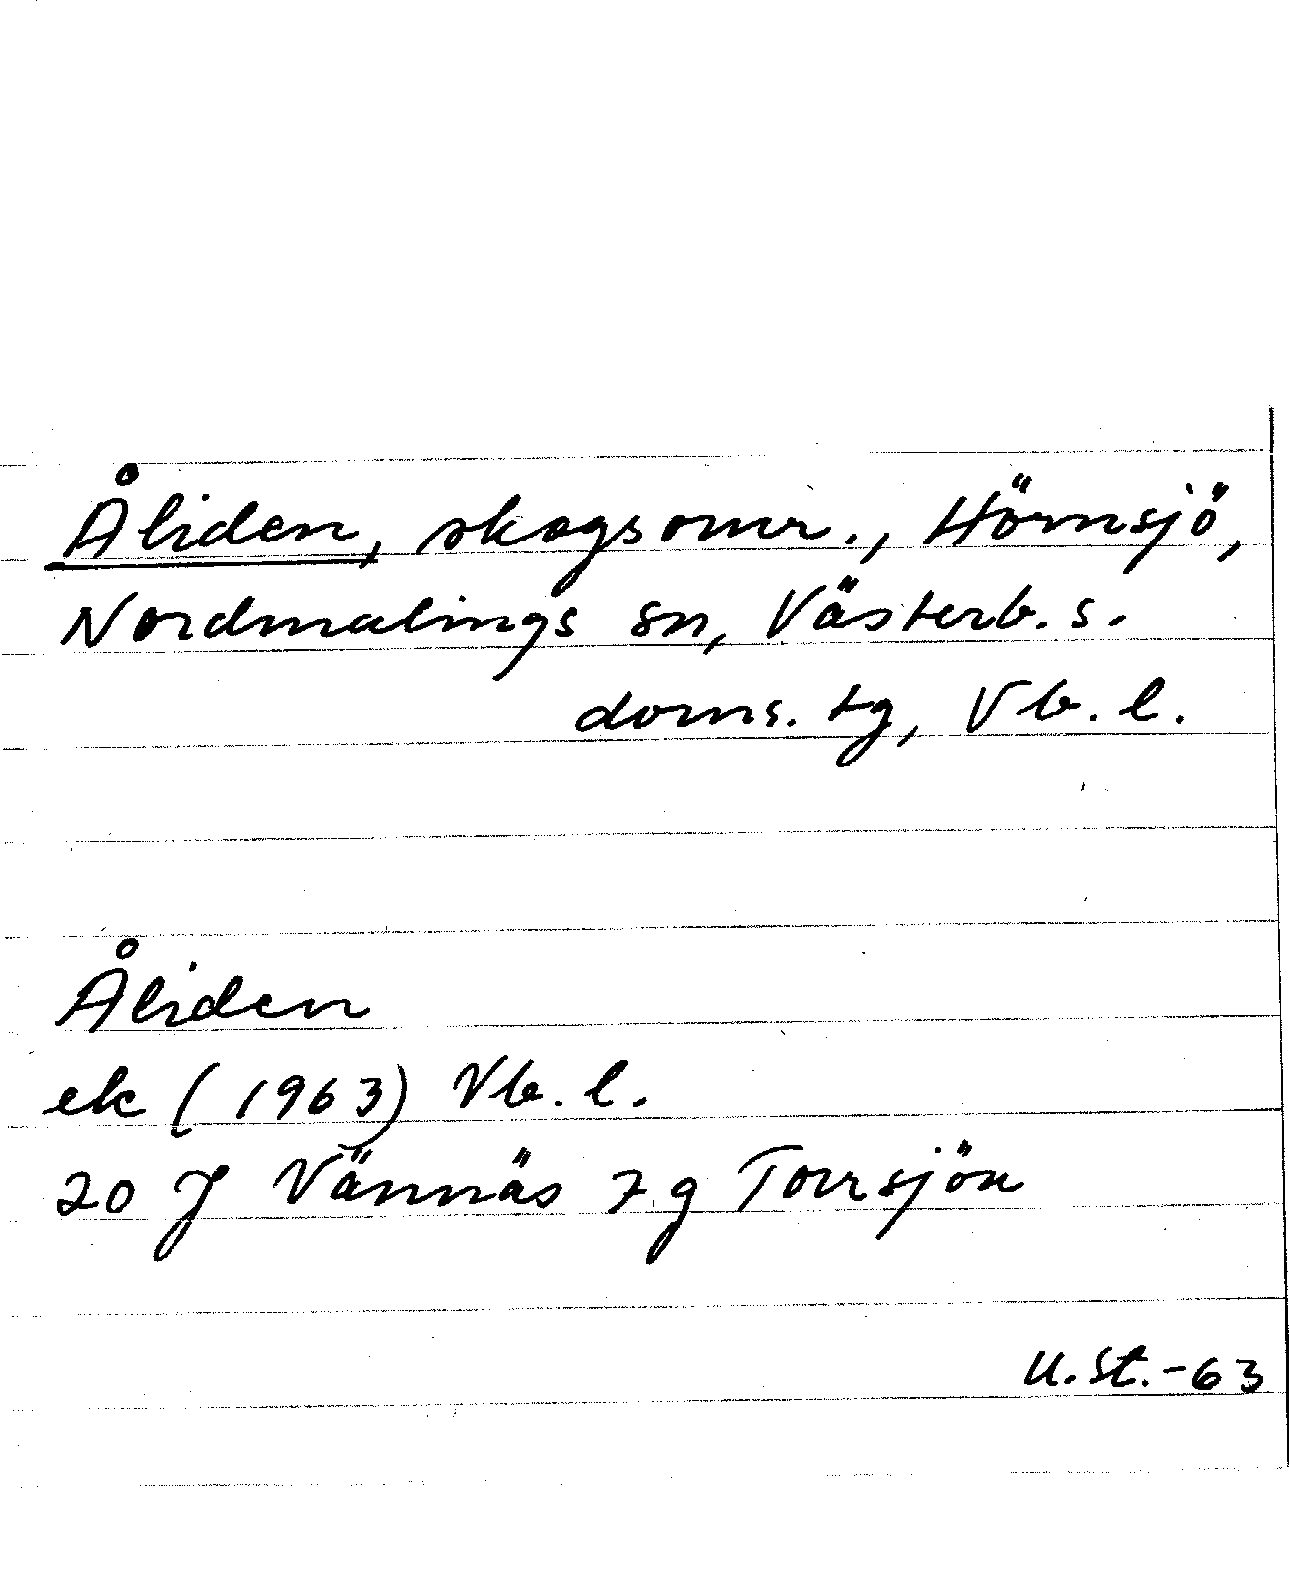 Åliden, skogsomr., Hörnsjö,
Nordmalings sn, Västerb. s.
doms. tg, Vb. l.
Åliden
ek (1963) Vb. l.
20 J Vännäs 7 g Torrsjön
U. St. -63